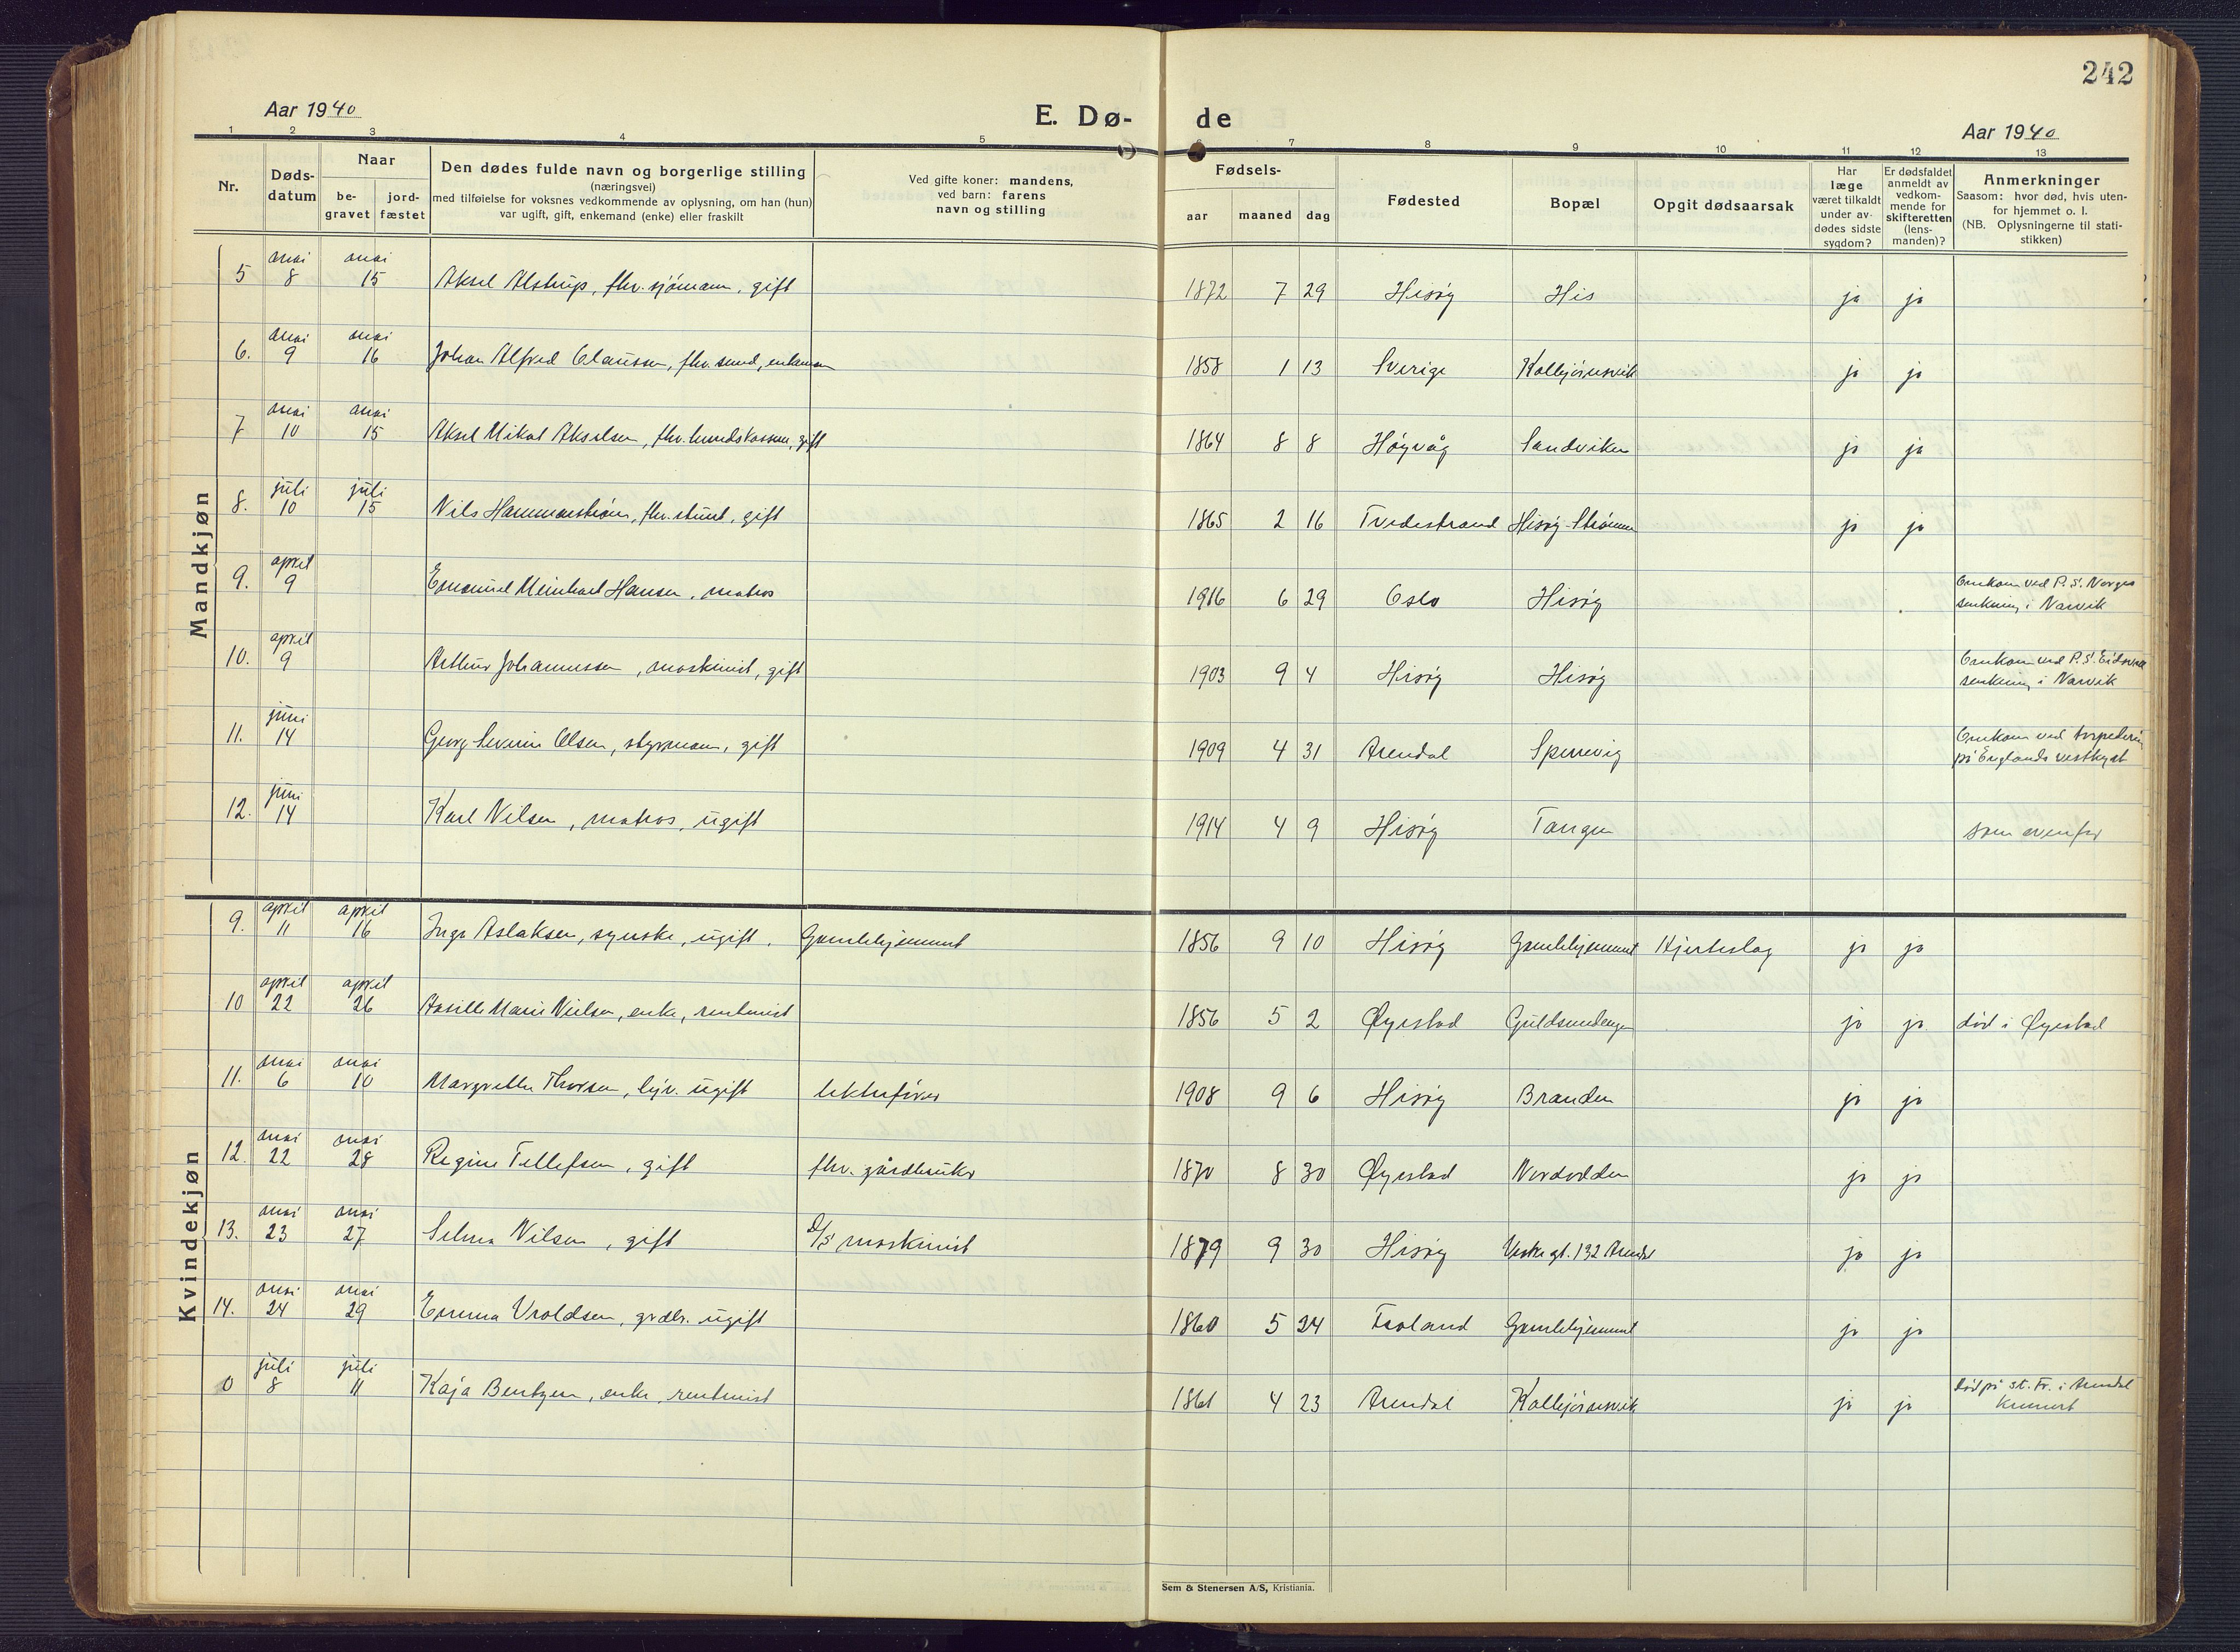 242
Aar 1940
E. Dø- de
Aar 1940
1 2 3 4 5 6 7 8 9 10 11 12 13
Nr.
Døds-
datum
Naar
be-
gravet
jord-
fæstet
Den dødes fulde navn og borgerlige stilling
(næringsvei)
med tilføielse for voksnes vedkommende av oplysning, om han (hun)
var ugift, gift, enkemand (enke) eller fraskilt
Ved gifte koner: mandens,
ved barn: farens
navn og stilling
Fødsels-
aar maaned dag
Fødested
Bopæl
Opgit dødsaarsak
Har
læge
været tilkaldt
under av-
dødes sidste
sygdom?
Er dødsfaldet
anmeldt av
vedkom-
mende for
skifteretten
(lens-
mannen)?
Anmerkninger
Saasom: hvor død, hvis uten-
for hjemmet o. l.
(NB. Oplysningerne til stati-
stikken)
Mandkjøn
5 mai 8 mai 15 Aksel Alstrup, fhv. sjømann, gift 1872 7 29 Hisøy His ja ja
6. mai 9 mai 16 Johan Alfred Claussen, fhv. smed, enkemann 1858 1 13 Sverige Kolbjørnsvik ja ja
7 mai 10 mai 15 Aksel Mikal Akselsen, fhv. gift 1864 8 8 Høyvåg Sandviken ja ja
8. juli 10 juli 15 Nils Hammarstrøm, fhv. gift 1865 2 16 Tvedestrand Hisøy Strømmen ja ja
9. april 9 Emanuel Meinhart Hansen, matros 1916 6 29 Oslo Hisøy Omkom ved P.S. Norges
senkning i Narvik
10. april 9 Arthur Johannessen, maskinist, gift 1903 9 4 Hisøy Hisøy Omkom ved P.S. Eidsvold
senkning i Narvik
11. juni 14 Georg Severin Olsen, styrmann, gift 1909 4 31 Arendal Sperrevig Omkom ved torpedering
på Englands vestkyst
12. juni 14 Karl Nilsen, matros, ugift 1914 4 9 Hisøy Tangen som ovenfor
Kvindekjøn
9. april 11 april 16 Inga Aslaksen, syerske, ugift. Gamlehjemmet 1856 9 10 Hisøy Gamlehjemmet Hjerteslag ja ja
10 april 22 april 26 Marie Nielsen, enke, rentenist 1856 5 2 Øyestad Guldsmedengen ja ja død i Øyestad
11. mai 6 mai 10 Margrethe Thorsen, hjv. ugift 1908 9 6 Hisøy Branden ja ja
12. mai 22 mai 28 Regine Tellefsen, gift fhv. gårdbruker 1870 8 30 Øyestad Nordodden ja ja
13. mai 23 mai 27 Selma Nilsen, gift D/S maskinist 1879 9 30 Hisøy Vestre gt. 132 Arendal ja ja
14. mai 24 mai 29 Emma Vroldsen, ugift 1860 5 24 Froland Gamlehjemmet ja ja
0 juli 8 juli 11 Kaja Bentzen, enke, rentenist 1861 4 23 Arendal Kolbjørnsvik ja ja død på St. Fr. i Arendal
Sem & Stenersen A/S, Kristiania.